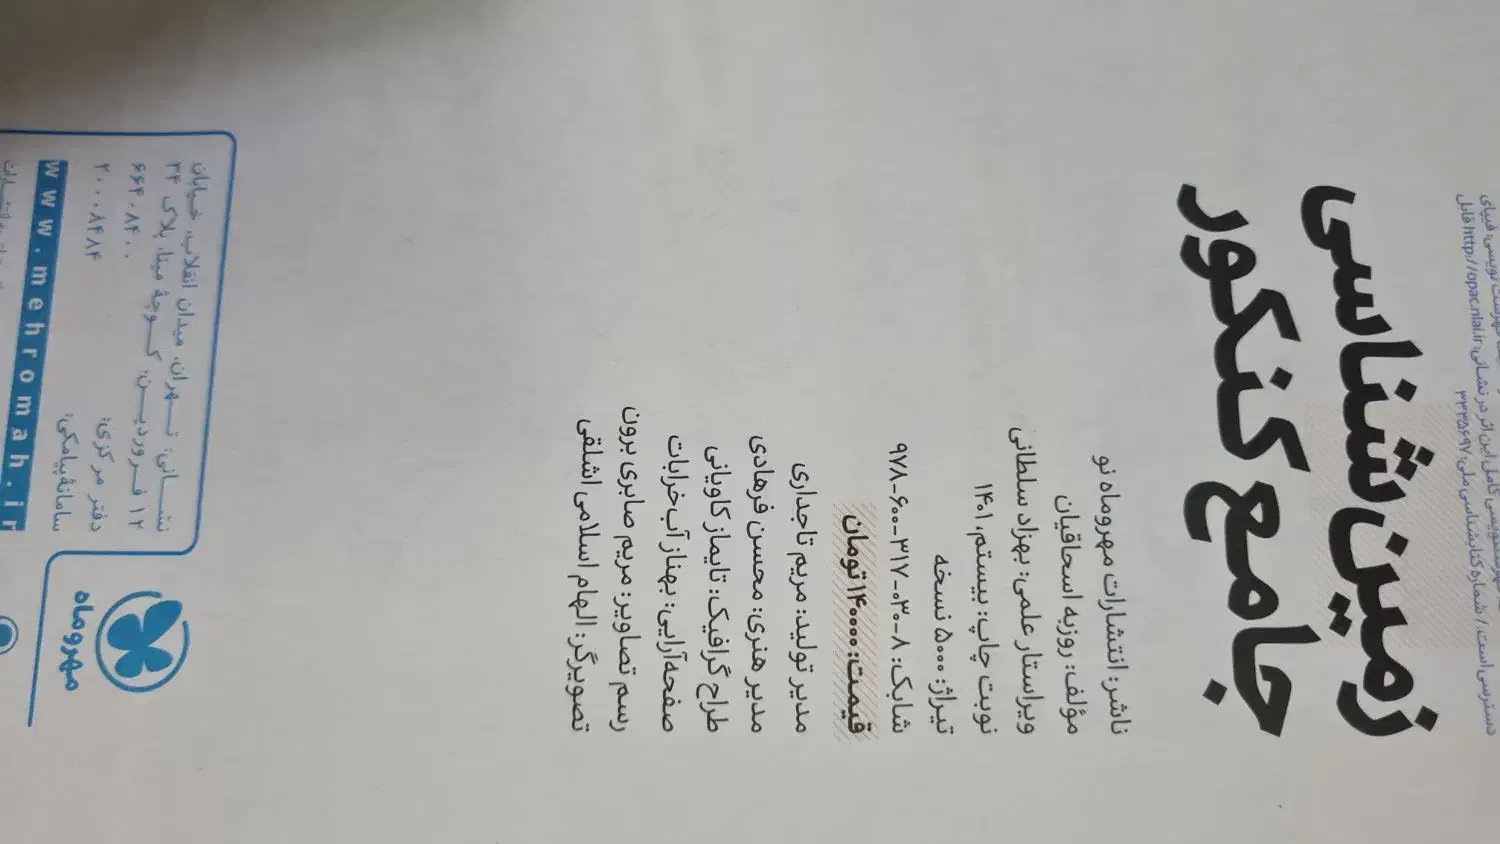 دسترسی است. / شماره کتابشناسی ملی: ۳۳۳۵۶۹۷
زمین‌شناسی
جامع کنکور
ناشر: انتشارات مهروماه نو
مؤلف: روزبه اسحاقیان
ویراستار علمی: بهزاد سلطانی
نوبت چاپ: بیستم، ۱۴۰۱
تیراژ: ۵۰۰۰ نسخه
شابک: ۸-۰۳۰-۳۱۷-۶۰۰-۹۷۸
قیمت: ۱۴۰۰۰۰ تومان
مدیر تولید: مریم تاجداری
مدیر هنری: محسن فرهادی
طراح گرافیک: تایماز کاویانی
صفحه‌آرایی: بهناز آب‌خرابات
رسم تصاویر: مریم صابری برون
تصویرگر: الهام اسلامی اشلقی
نشانی: تهران، میدان انقلاب، خیابان
۱۲ فروردین، کوچهٔ مینا، پلاک ۳۴
دفتر مرکزی: ۶۶۴۰۸۴۰۰
سامانهٔ پیامکی: ۲۰۰۰۸۴۸۴
www.mehromah.ir
مهروماه